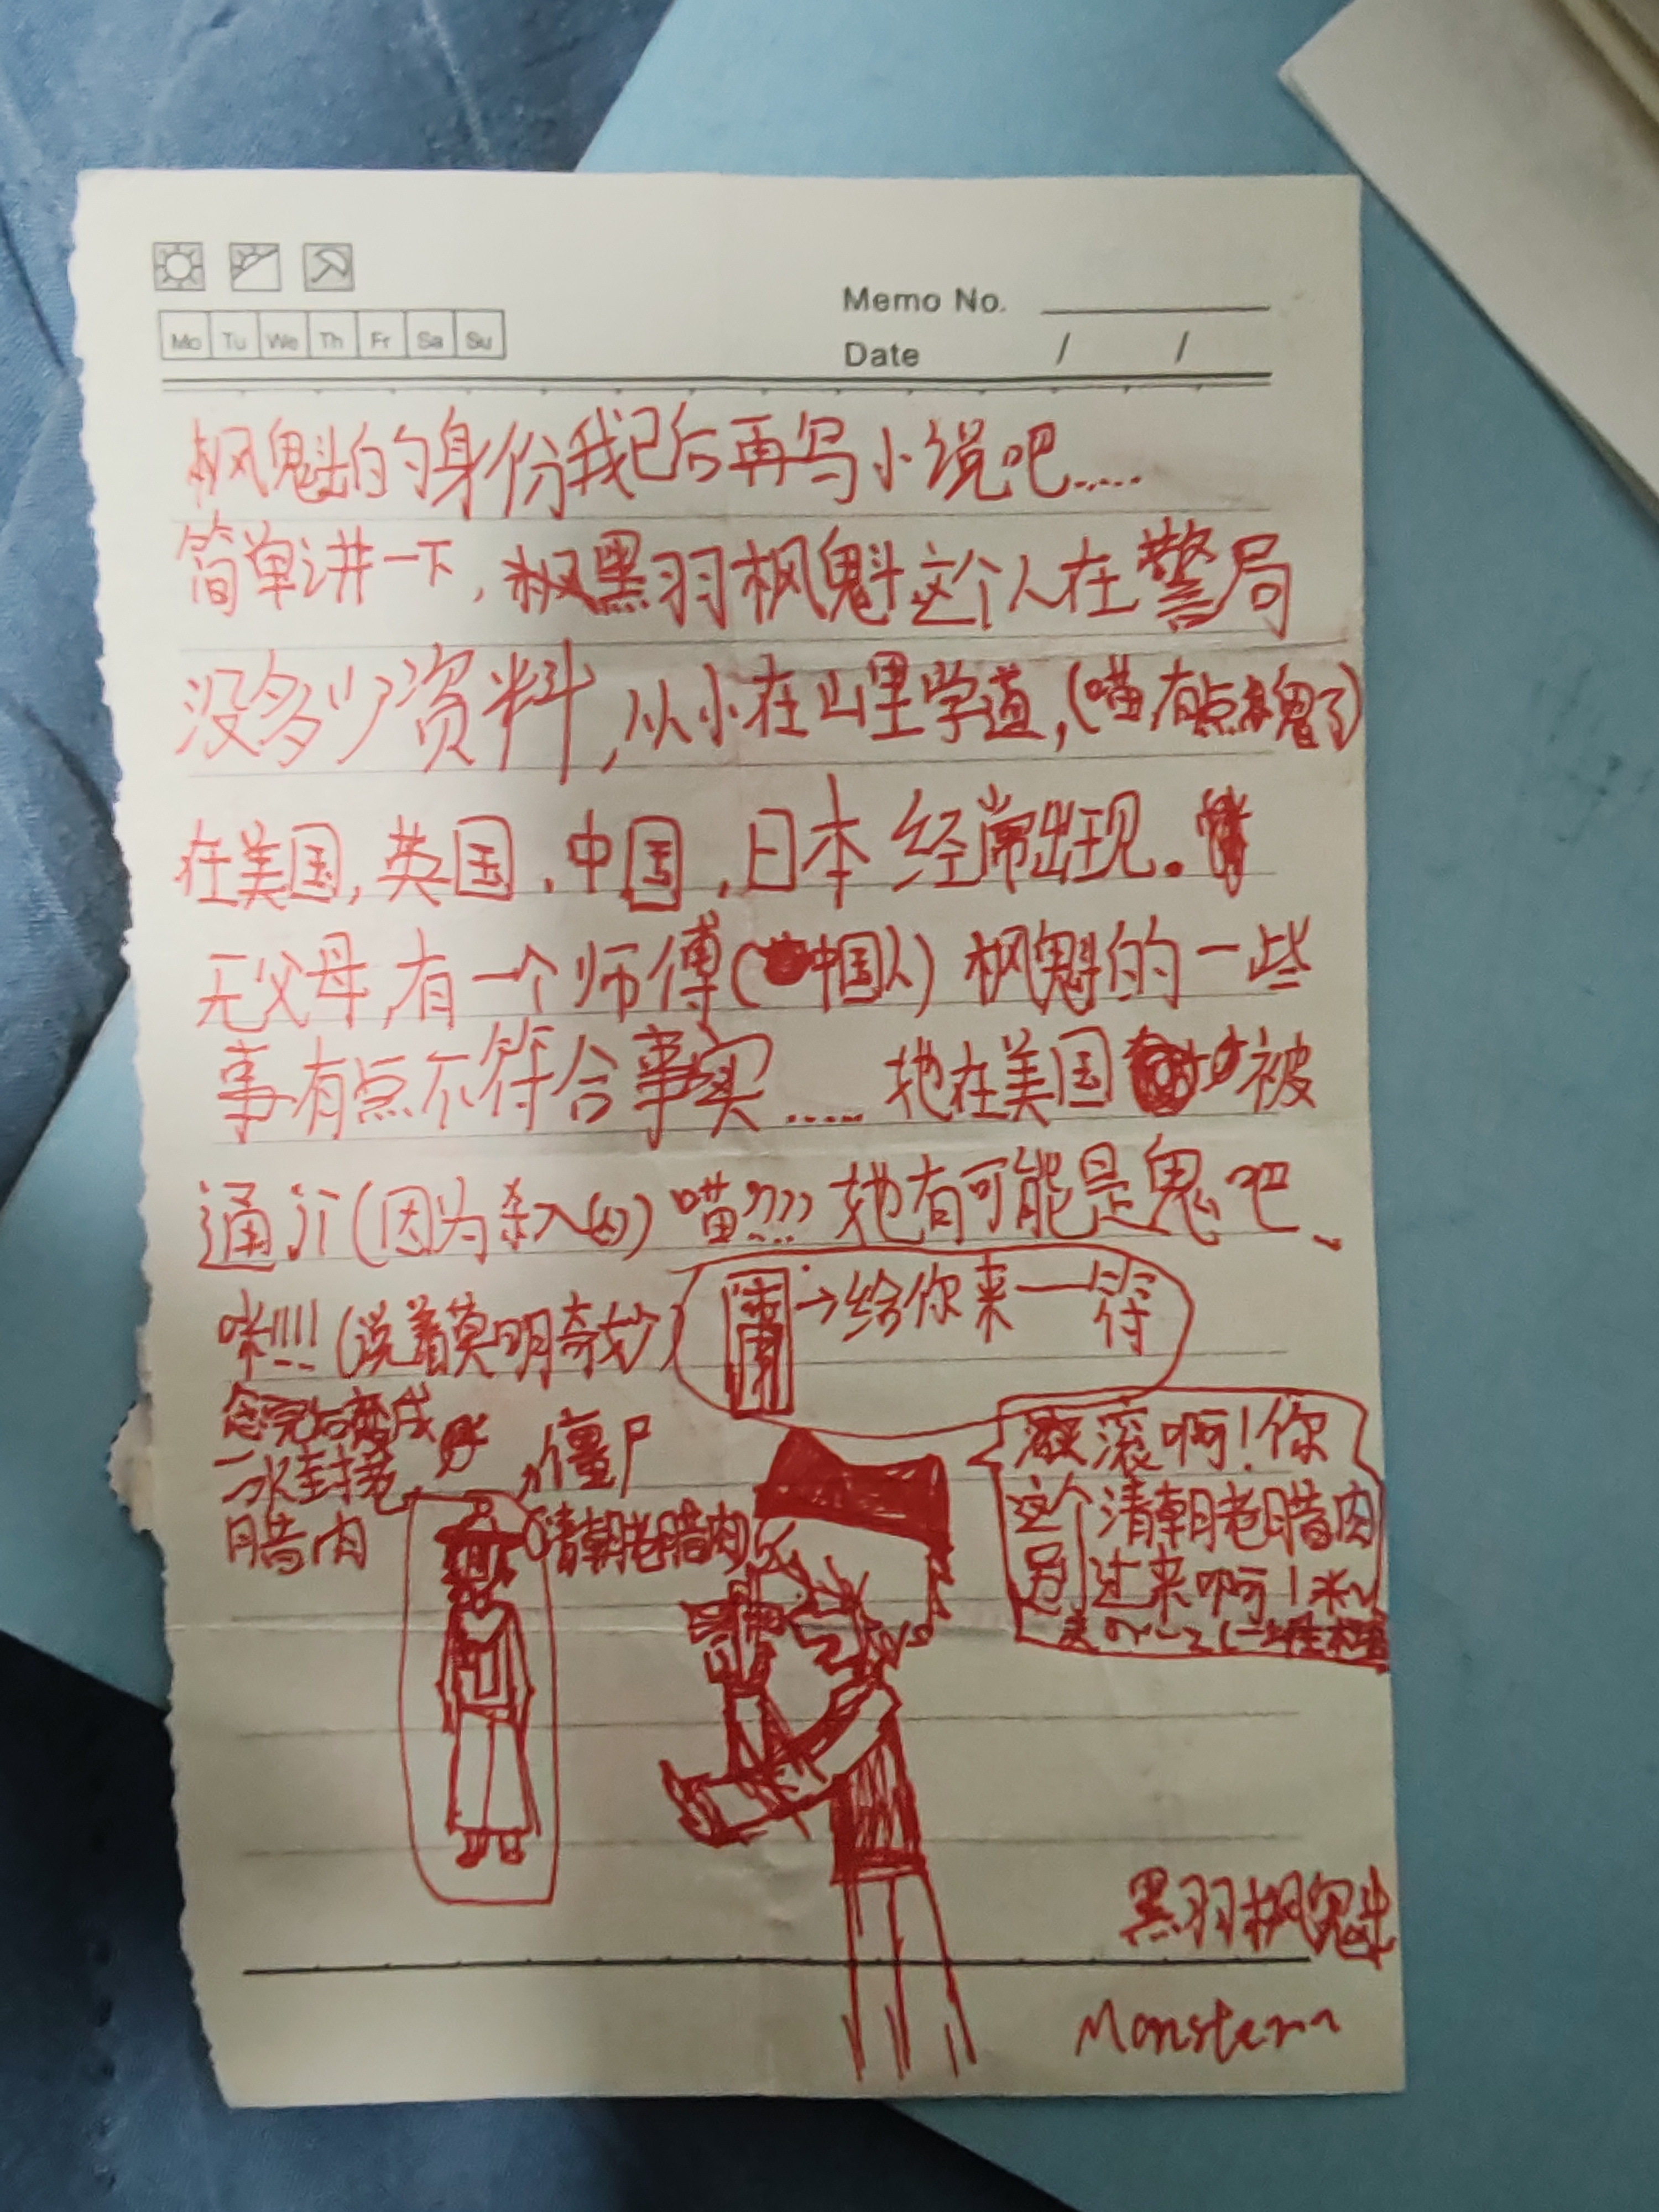 Memo No.
Mo Tu We Th Fr Sa Su
Date / /
枫魁的身份我已后再写小说吧……
简单讲一下，黑羽枫魁这个人在警局
没多少资料，从小在山里学道，(喵有点魂了)
在美国，英国，中国，日本经常出现．
无父母，有一个师傅(中国人)枫魁的一些
事有点不符合事实……她在美国被
通(因为杀人的)喵????她有可能是鬼吧、
咪!!!!(说着莫明奇妙)
→给你来一符
念完后变成
一冰封老
腊肉
僵尸
清朝老腊肉
滚啊！你
这个清朝老腊肉
别过来啊！
黑羽枫魁
Monster~